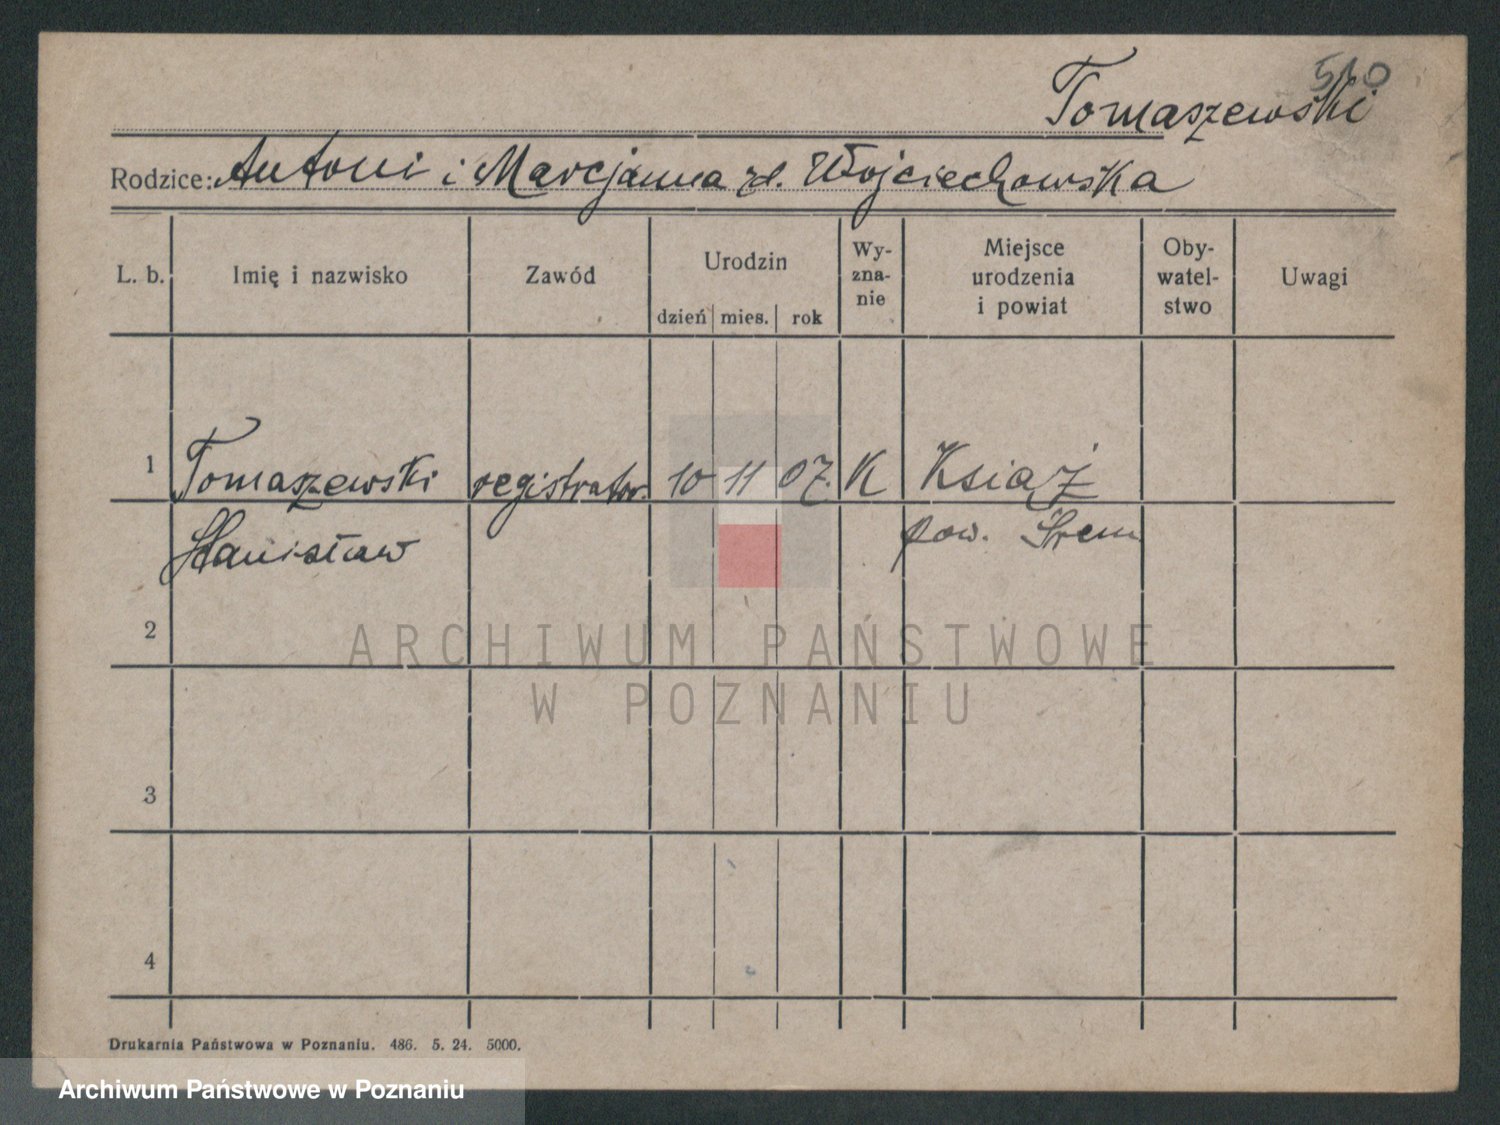 510
Tomaszewski
Rodzice: Antoni i Marcjanna zd. Wojciechowska
L. b. Imię i nazwisko Zawód Urodzin dzień mies. rok Wy-zna-nie Miejsce urodzenia i powiat Oby-watel-stwo Uwagi
1 Tomaszewski registrator. 10 11 07. K Książ
Stanisław pow. Śrem
2
ARCHIWUM PAŃSTWOWE
W POZNANIU
3
4
Drukarnia Państwowa w Poznaniu. 486. 5. 24. 5000.
Archiwum Państwowe w Poznaniu